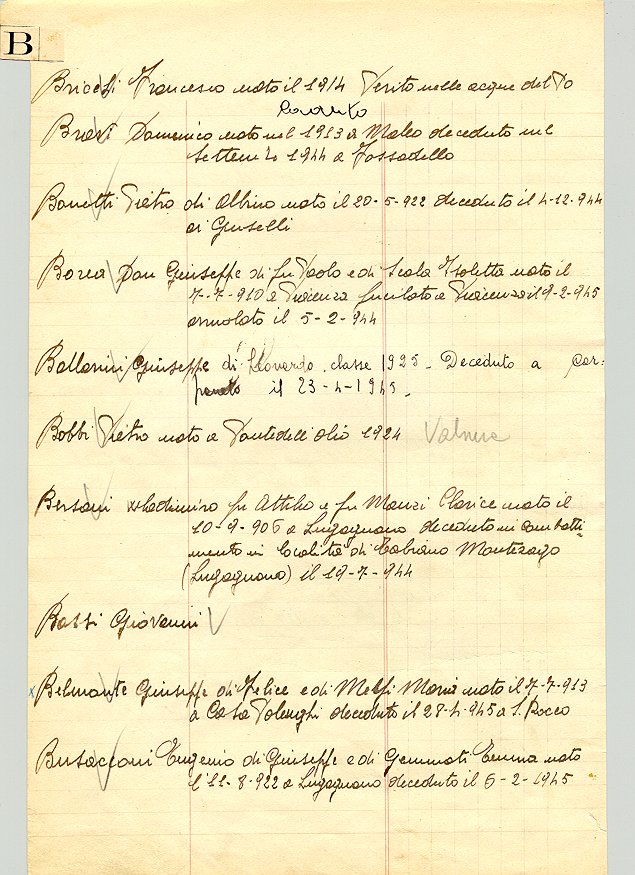 B
Francesco nato il 1914 Perito nelle acque del Po
Domenico nato nel 1913 a Maleo deceduto nel
settembre 1944 a Fossadello
Bonetti Pietro di Albino nato il 20-5-922 deceduto il 4-12-944
ai Guselli
Borea Don Giuseppe di fu Paolo e di Scala Isoletta nato il
7-7-910 a Piacenza fucilato a Piacenza il 9-2-945
arruolato il 5-2-944
Ballarini Giuseppe di Leonardo classe 1925 - Deceduto a Car-
paneto il 23-4-1945 -
Bobbi Pietro nato a Ponte dell'Olio 1924
Bersani Wladimiro fu Attilio e fu Manzi Clarice nato il
10-9-906 a Lugagnano deceduto in combatti-
mento in località di Tabiano Montezago
(Lugagnano) il 19-7-944
Bassi Giovanni
Belmonte Giuseppe di Felice e di Melfi Maria nato il 7-7-913
a Casa deceduto il 28-4-945 a S. Rocco
Busacconi Eugenio di Giuseppe e di Gemmati Emma nato
l'11-8-922 a Lugagnano deceduto il 6-2-1945